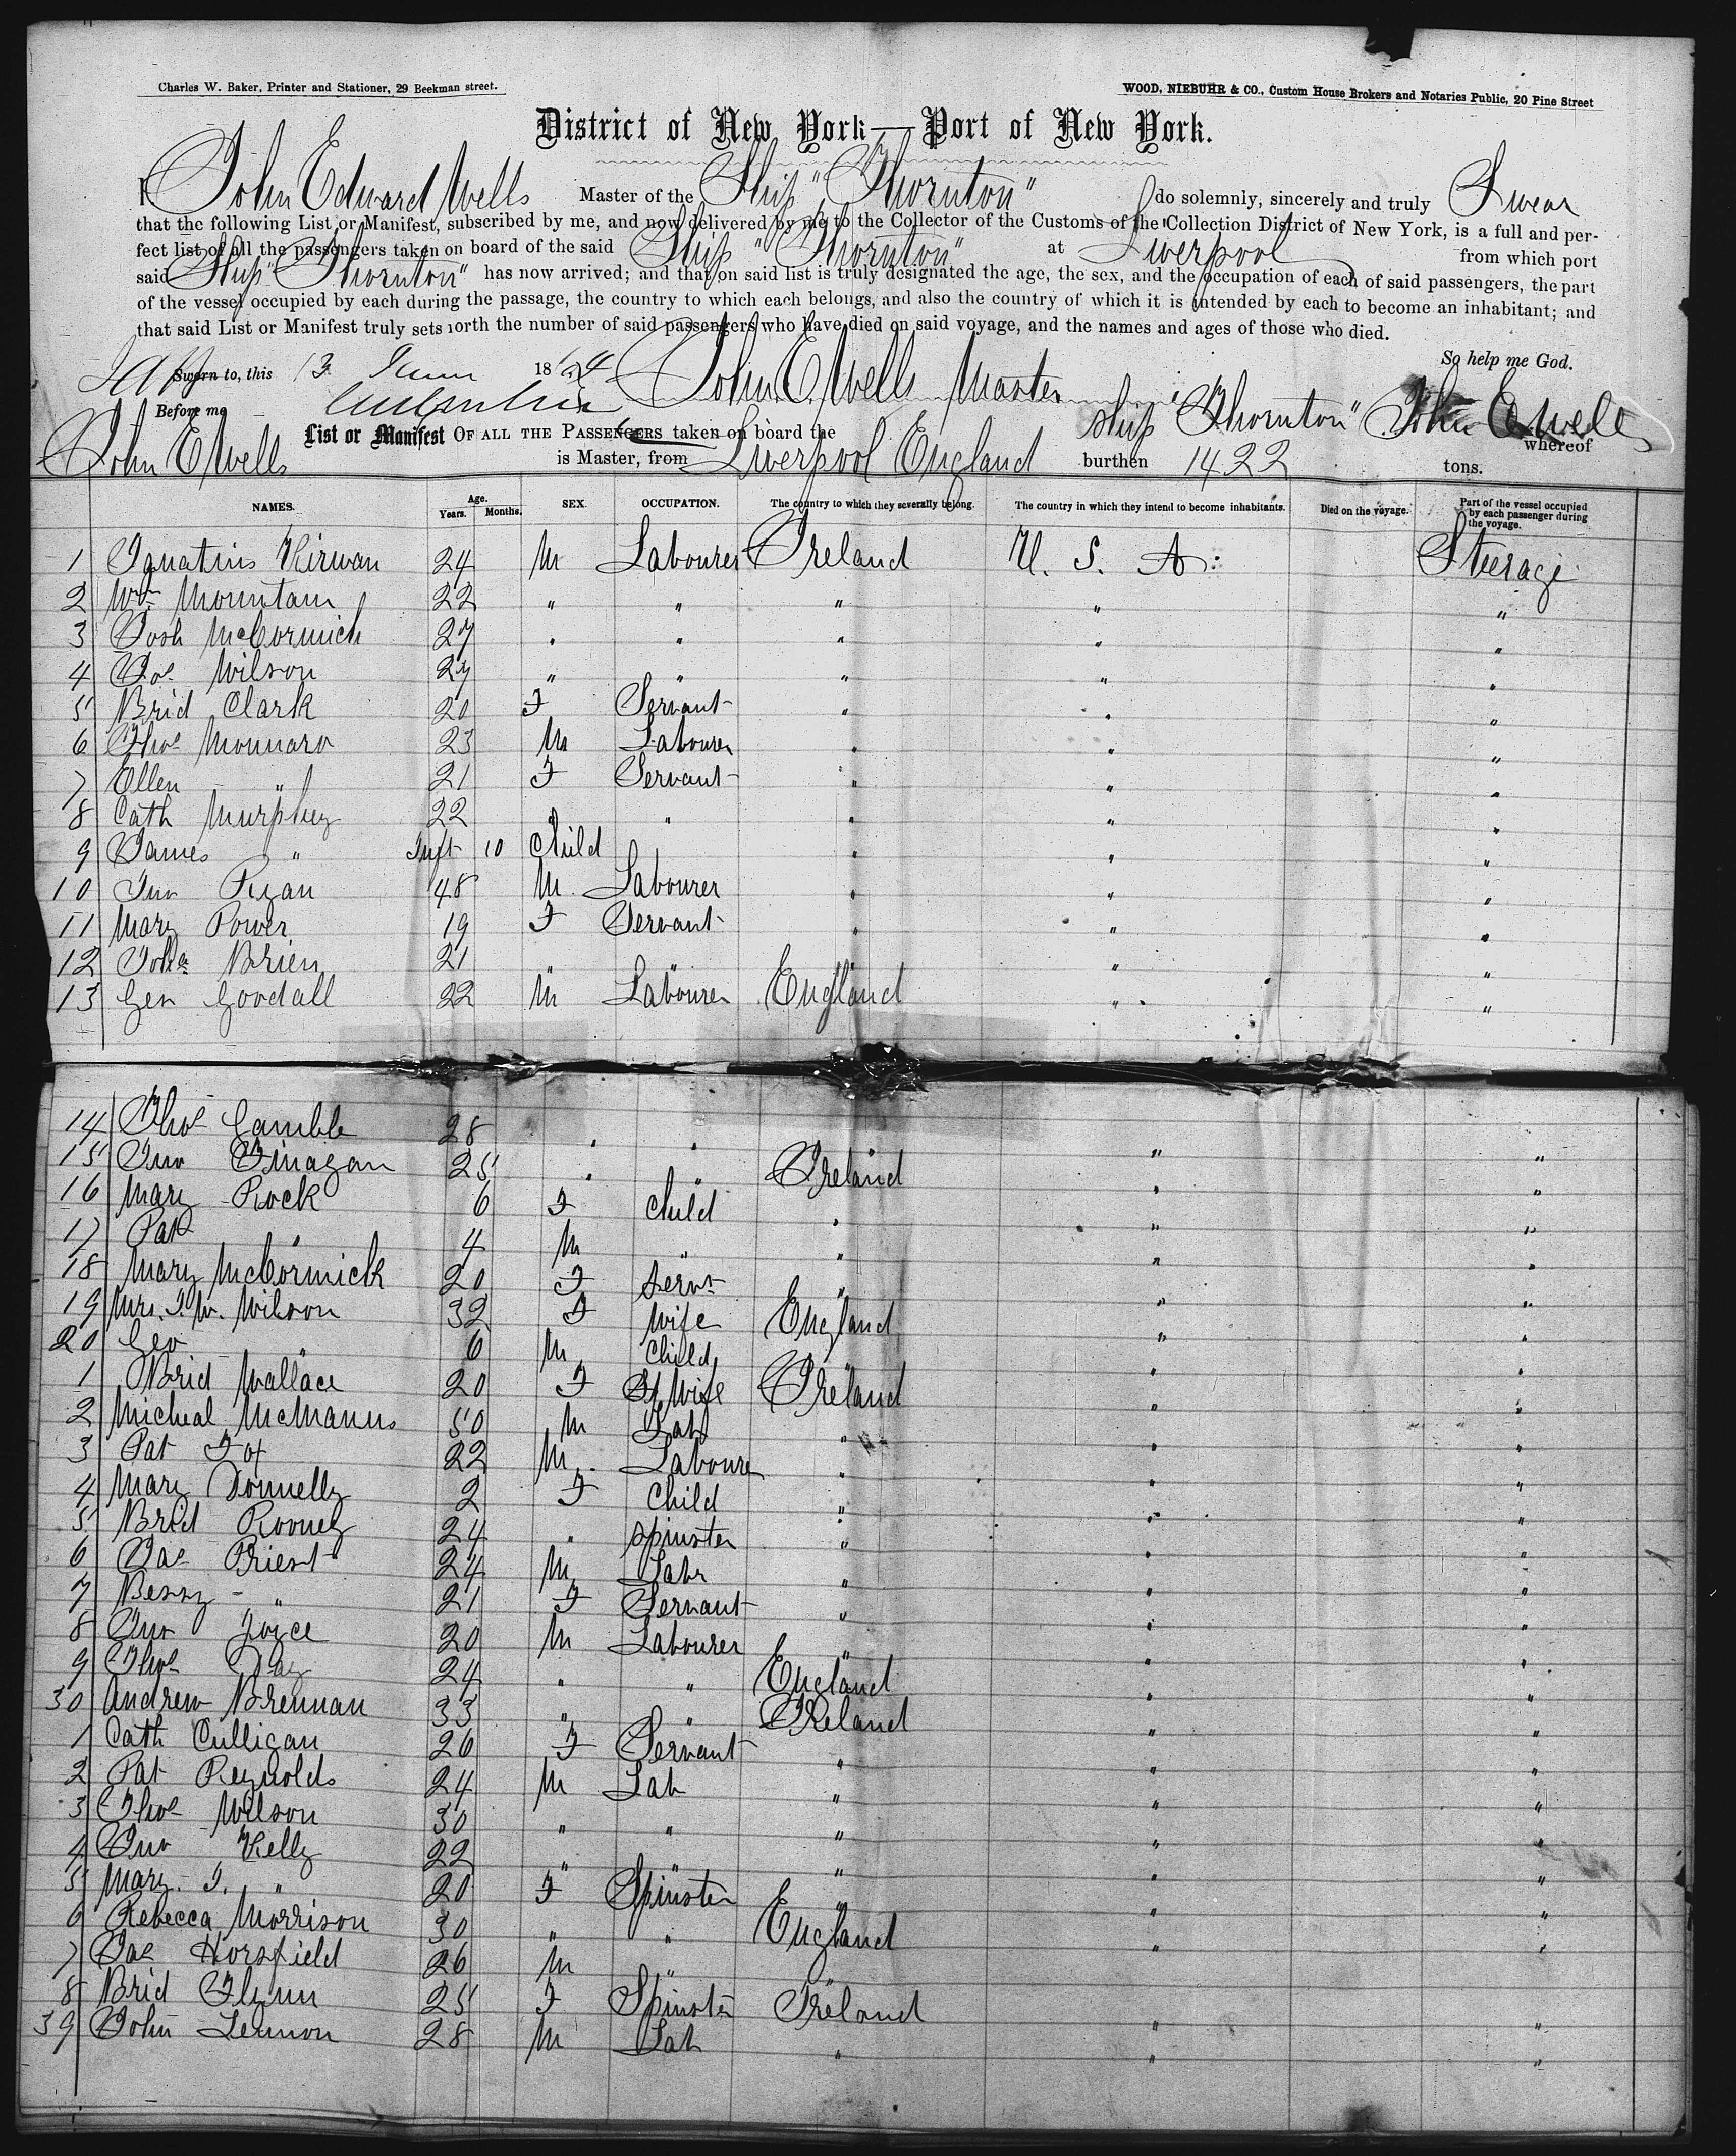 Charles W. Baker, Printer and Stationer, 29 Beekman street.
WOOD, NIEBUHR & CO., Custom House Brokers and Notaries Public, 20 Pine Street
District of New York—Port of New York.
I John Edward Wells Master of the Ship "Thornton" do solemnly, sincerely and truly Swear
that the following List or Manifest, subscribed by me, and now delivered by me to the Collector of the Customs of the Collection District of New York, is a full and per-
fect list of all the passengers taken on board of the said Ship "Thornton" at Liverpool from which port
said Ship "Thornton" has now arrived; and that on said list is truly designated the age, the sex, and the occupation of each of said passengers, the part
of the vessel occupied by each during the passage, the country to which each belongs, and also the country of which it is intended by each to become an inhabitant; and
that said List or Manifest truly sets forth the number of said passengers who have died on said voyage, and the names and ages of those who died.
So help me God.
Sworn to, this 13 June 1864 John E Wells Master
Before me
List or Manifest OF ALL THE PASSENGERS taken on board the Ship "Thornton" John E Wells whereof
John E Wells is Master, from Liverpool England burthen 1422 tons.
NAMES. Age. Years. Months. SEX. OCCUPATION. The country to which they severally belong. The country in which they intend to become inhabitants. Died on the voyage. Part of the vessel occupied by each passenger during the voyage.
1 Ignatius Kirwan 24 M Labourer Ireland U. S. A. Steerage
2 Wm Mountain 22 " " " " "
3 Josh McCormick 27 " " " " "
4 Jos Wilson 27 " " " " "
5 Brid Clark 20 F Servant " " "
6 Thos Monnaro 23 M Labourer " " "
7 Ellen " 21 F Servant " " "
8 Cath Murphy 22 " " " " "
9 James " Inft 10 Child " " "
10 Jno Ryan 48 M Labourer " " "
11 Mary Power 19 F Servant " " "
12 Joha Brien 21 " " " " "
13 Geo Goodall 22 M Labourer England " "
14 Thos Gamble 28 " " " " "
15 Jno Finagan 25 " " Ireland " "
16 Mary Rock 6 F Child " " "
17 Pat " 4 M " " " "
18 Mary McCormick 20 F Servt " " "
19 Mrs. J. W. Wilson 32 F Wife England " "
20 Geo " 6 M Child " " "
1 Brid Wallace 20 F Wife Ireland " "
2 Micheal McManus 50 M Lab " " "
3 Pat Fox 22 M Labourer " " "
4 Mary Donnelly 2 F Child " " "
5 Brid Rooney 24 " Spinster " " "
6 Jas Priest 24 M Labr " " "
7 Bessy " 21 F Servant " " "
8 Jno Joyce 20 M Labourer " " "
9 Thos Day 24 " " England " "
30 Andrew Brennan 33 " " Ireland " "
1 Cath Culligan 26 F Servant " " "
2 Pat Reynolds 24 M Lab " " "
3 Thos Wilson 30 " " " " "
4 Jno Kelly 22 " " " " "
5 Mary J. " 20 F Spinster " " "
6 Rebecca Morrison 30 " " England " "
7 Jas Horsfield 26 M " " " "
8 Brid Flynn 25 F Spinster Ireland " "
39 John Lennon 28 M Lab " " "